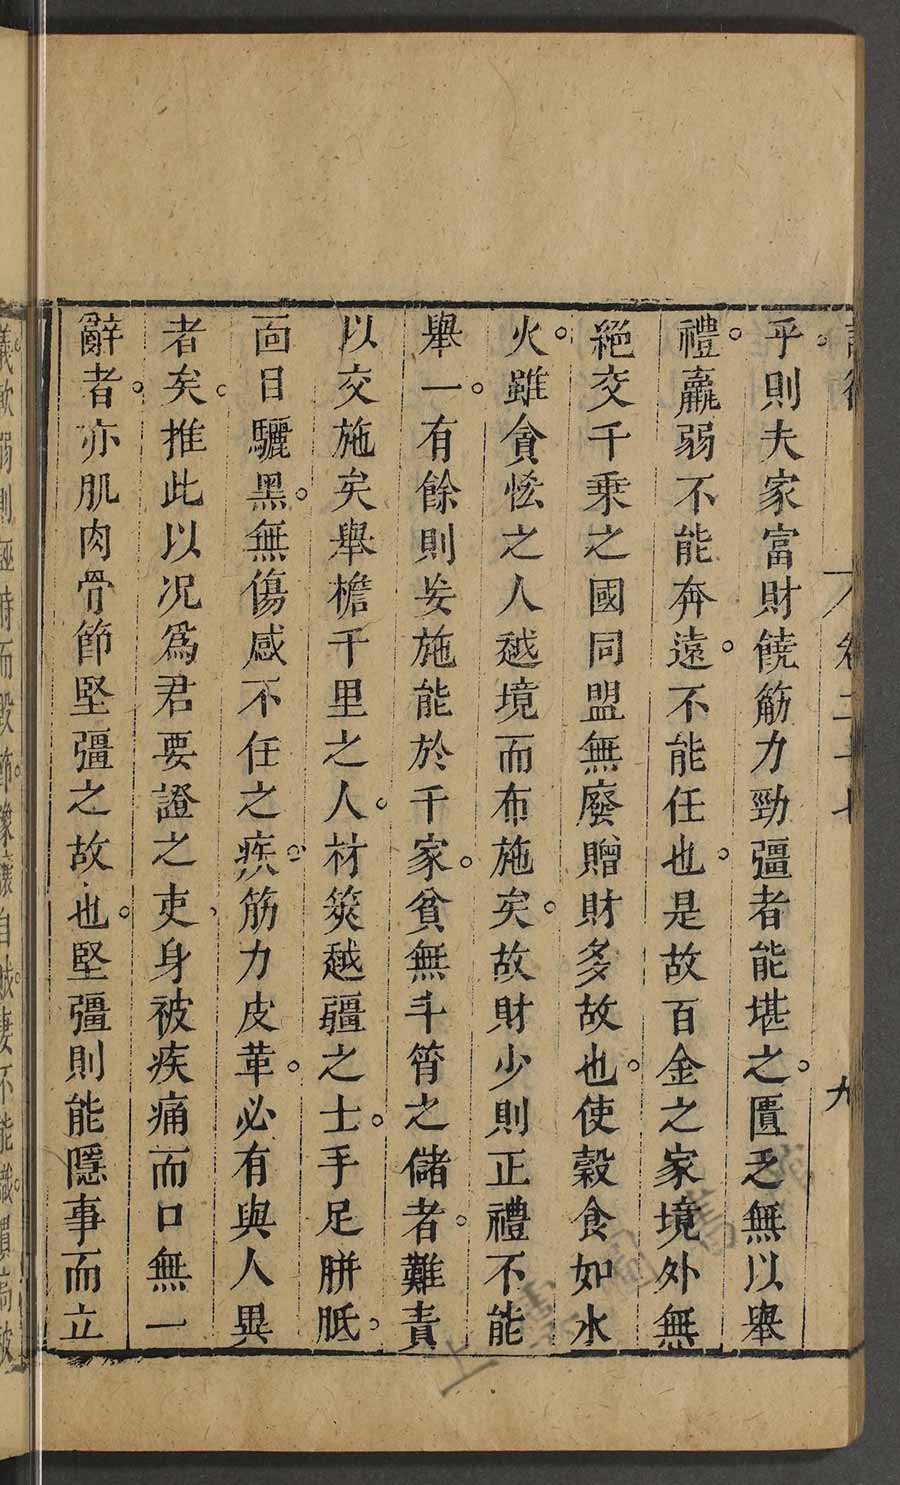 卷二十七 九
乎。則夫家富財饒筋力勁彊者能堪之。匱乏無以舉
禮。羸弱不能奔遠。不能任也。是故百金之家境外無
絕交千乘之國同盟無廢贈財多故也。使穀食如水
火。雖貪恡之人越境而布施矣。故財少則正禮不能
舉一。有餘則妄施能於千家。貧無斗筲之儲者。難責
以交施矣舉檐千里之人。材筴越疆之士。手足胼胝。
面目驪黑。無傷感不任之疾。筋力皮革。必有與人異
者矣。推此以况爲君要證之吏、身被疾痛而口無一
辭者。亦肌肉骨節堅彊之故也。堅彊則能隱事而立